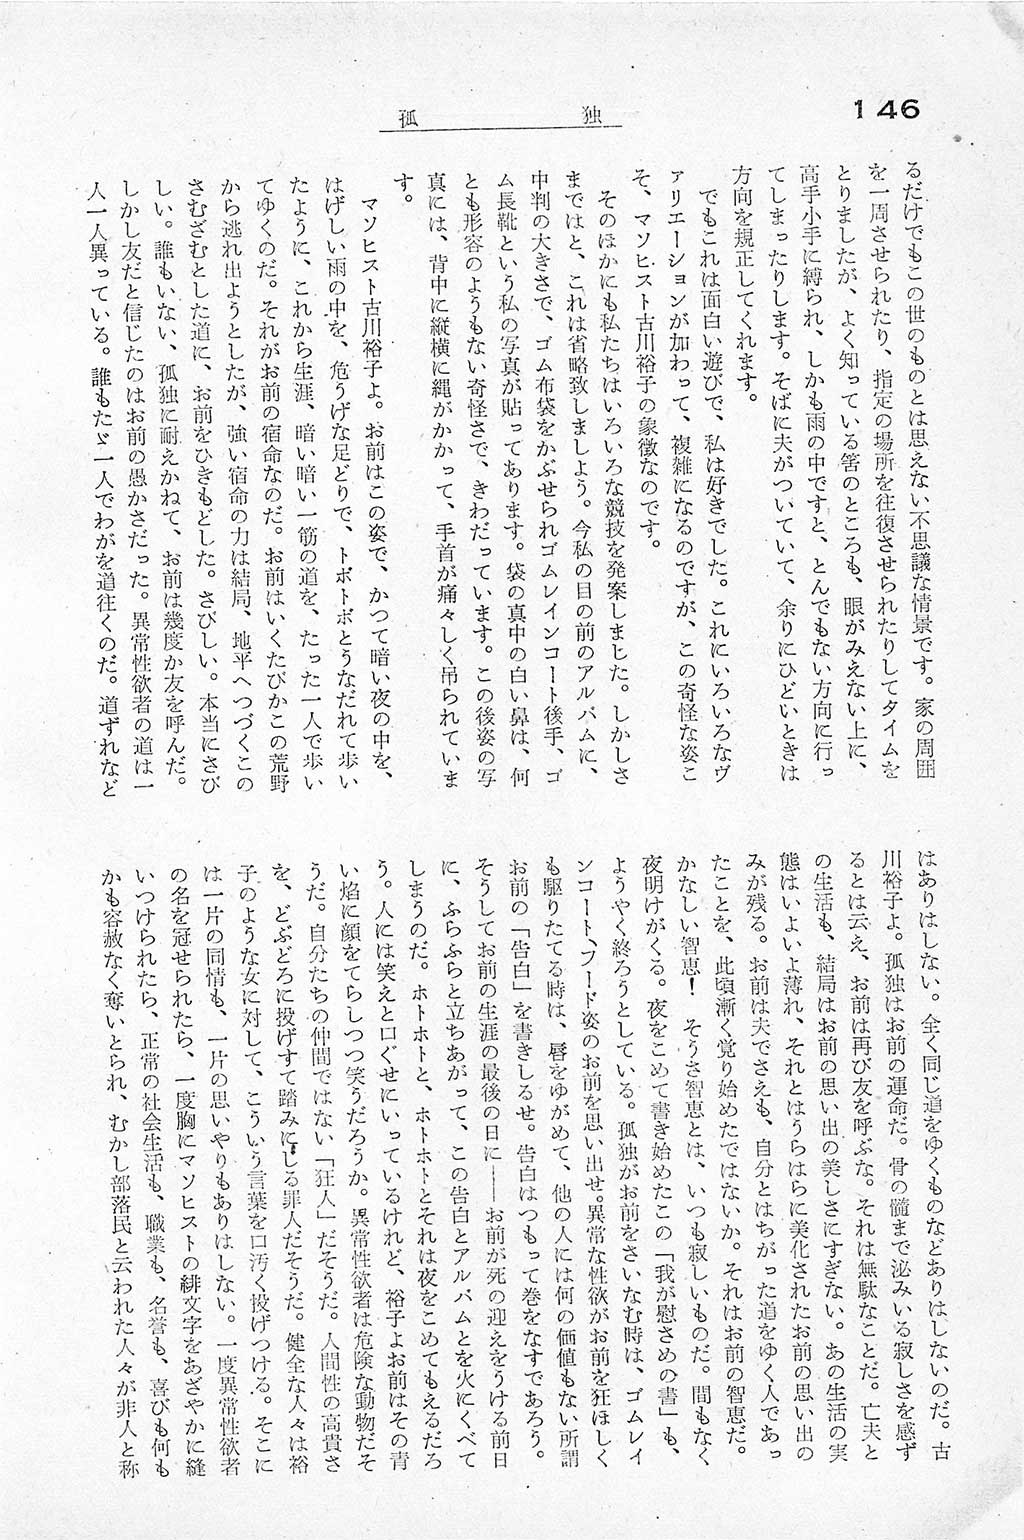 146
孤独
るだけでもこの世のものとは思えない不思議な情景です。家の周囲
を一周させられたり、指定の場所を往復させられたりしてタイムを
とりましたが、よく知っている筈のところも、眼がみえない上に、
高手小手に縛られ、しかも雨の中ですと、とんでもない方向に行っ
てしまったりします。そばに夫がついていて、余りにひどいときは
方向を規正してくれます。
でもこれは面白い遊びで、私は好きでした。これにいろいろなヴ
ァリエーションが加わって、複雑になるのですが、この奇怪な姿こ
そ、マソヒスト古川裕子の象徴なのです。
そのほかにも私たちはいろいろな競技を発案しました。しかしさ
までは と、これは省略致しましよう。今私の目の前のアルバムに、
中判の大きさで、ゴム布袋をかぶせられゴムレインコート後手、ゴ
ム長靴という私の写真が貼ってあります。袋の真中の白い鼻は、何
とも形容のようもない奇怪さで、きわだっています。この後姿の写
真には、背中に縦横に縄がかかって、手首が痛々しく吊られていま
す。
マソヒスト古川裕子よ。お前はこの姿で、かつて暗い夜の中を、
はげしい雨の中を、危うげな足どりで、トボトボとうなだれて歩い
たように、これから生涯、暗い暗い一筋の道を、たった一人で歩い
てゆくのだ。それがお前の宿命なのだ。お前はいくたびかこの荒野
から逃れ出ようとしたが、強い宿命の力は結局、地平へつづくこの
さむざむとした道に、お前をひきもどした。さびしい。本当にさび
しい。誰もいない、孤独に耐えかねて、お前は幾度か友を呼んだ。
しかし友だと信じたのはお前の愚かさだった。異常性欲者の道は一
人一人異っている。誰もたゞ一人でわがを道往くのだ。道ずれなど
はありはしない。全く同じ道をゆくものなどありはしないのだ。古
川裕子よ。孤独はお前の運命だ。骨の髄まで泌みいる寂しさを感ず
るとは云え、お前は再び友を呼ぶな。それは無駄なことだ。亡夫と
の生活も、結局はお前の思い出の美しさにすぎない。あの生活の実
態はいよいよ薄れ、それとはうらはらに美化されたお前の思い出の
みが残る。お前は夫でさえも、自分とはちがった道をゆく人であっ
たことを、此頃漸く覚り始めたではないか。それはお前の智恵だ。
かなしい智恵！　そうさ智恵とは、いつも寂しいものだ。間もなく
夜明けがくる。夜をこめて書き始めたこの「我が慰さめの書」も、
ようやく終ろうとしている。孤独がお前をさいなむ時は、ゴムレイ
ンコート、フード姿のお前を思い出せ。異常な性欲がお前を狂ほしく
も駆りたてる時は、唇をゆがめて、他の人には何の価値もない所謂
お前の「告白」を書きしるせ。告白はつもって巻をなすであろう。
そうしてお前の生涯の最後の日に――お前が死の迎えをうける前日
に、ふらふらと立ちあがって、この告白とアルバムとを火にくべて
しまうのだ。ホトホトと、ホトホトとそれは夜をこめてもえるだろ
う。人には笑えと口ぐせにいっているけれど、裕子よお前はその青
い焰に顔をてらしつつ笑うだろうか。異常性欲者は危険な動物だそ
うだ。自分たちの仲間ではない「狂人」だそうだ。人間性の高貴さ
を、どぶどろに投げすて踏みにじる罪人だそうだ。健全な人々は裕
子のような女に対して、こういう言葉を口汚く投げつける。そこに
は一片の同情も、一片の思いやりもありはしない。一度異常性欲者
の名を冠せられたら、一度胸にマソヒストの緋文字をあざやかに縫
いつけられたら、正常の社会生活も、職業も、名誉も、喜びも何も
かも容赦なく奪いとられ、むかし部落民と云われた人々が非人と称